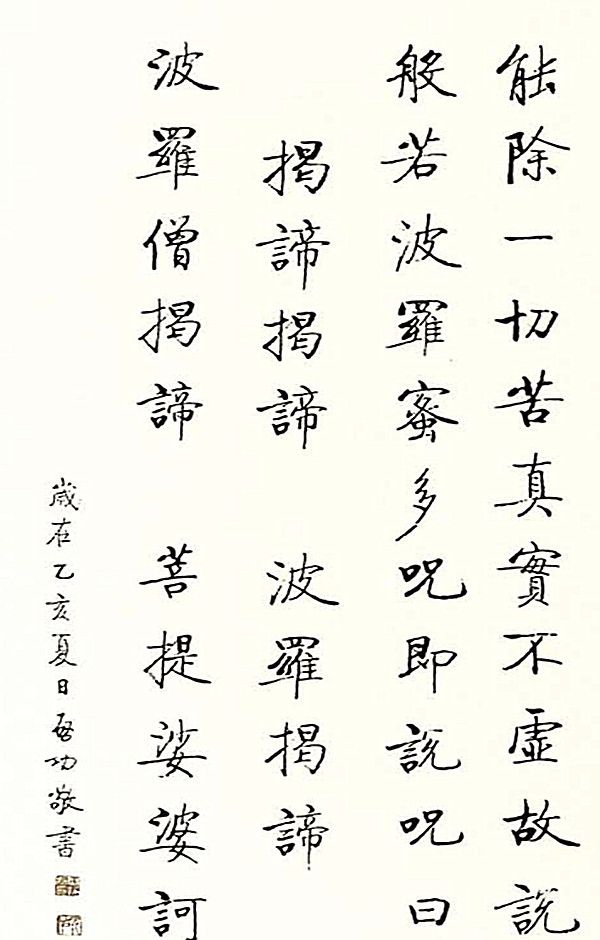 能除一切苦真實不虛故說
般若波羅蜜多呪即說呪曰
揭諦揭諦 波羅揭諦
波羅僧揭諦 菩提娑婆訶
歲在乙亥夏日啓功敬書